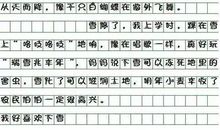 从天而降，像千只白蝴蝶在窗外飞舞。
雪停了，我上学时，踩在雪
上“咯吱咯吱”地响，像在唱歌一样，真好玩
“瑞雪兆丰年”，妈妈说下雪可以冻死地里的
害虫，雪化了可以滋润土地，明年小麦丰收了
农民伯伯一定很高兴。
我好喜欢下雪